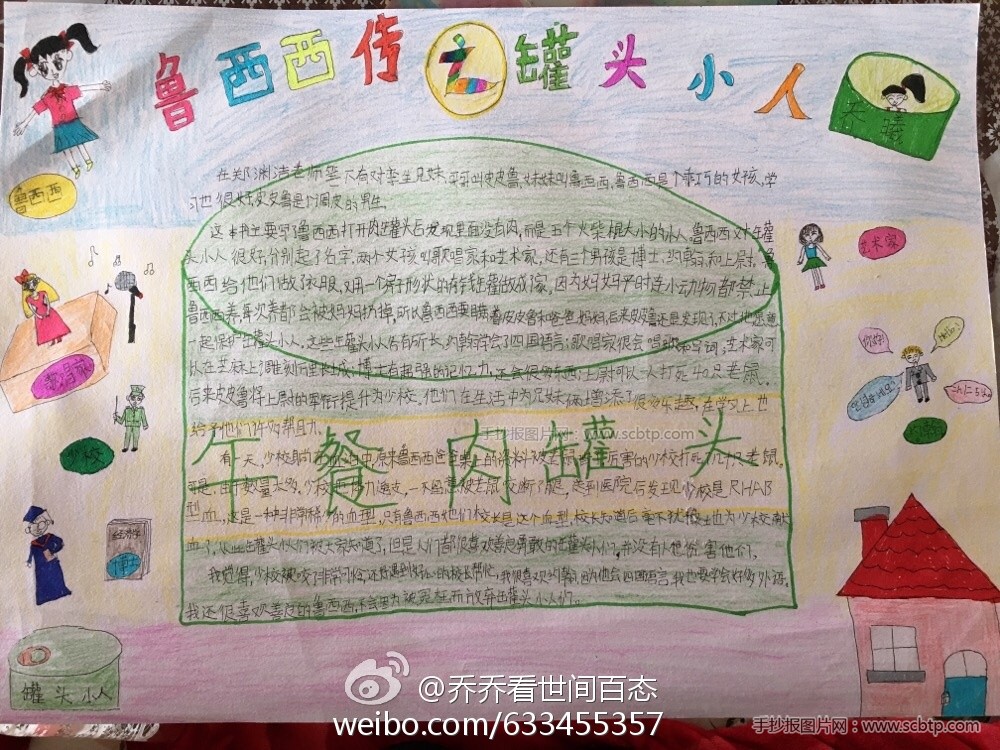 鲁西西传之罐头小人
乔曦
鲁西西
艺术家
歌唱家
你好!
Hello!
안녕하세요!
少校
博士
罐头小人
午餐肉罐头
在郑渊洁老师笔下有对孪生兄妹,哥哥叫皮皮鲁,妹妹叫鲁西西,鲁西西是个乖巧的女孩,学
习也很好,皮皮鲁是个调皮的男生。
这本书主要写鲁西西打开肉罐头后发现里面没有肉,而是五个火柴棍大小的小人,鲁西西对罐
头小人很好,分别起了名字,两个女孩叫歌唱家和艺术家,还有三个男孩是博士,约翰和上尉。鲁
西西给他们做了衣服,又用一个房子形状的存钱罐做成家,因为妈妈平时连小动物都禁止
鲁西西养,每次养都会被妈妈扔掉,所以鲁西西要瞒着皮皮鲁和爸爸妈妈,后来皮皮鲁还是发现了,不过他愿意
一起保护罐头小人。这些罐头小人各有所长,约翰学会了四国语言;歌唱家很会唱歌和写词;艺术家可
以在芝麻上雕刻万里长城;博士有超强的记忆力,还会很多东西;上尉可以一人打死40只老鼠。
后来皮皮鲁将上尉的军衔提升为少校,他们在生活中为兄妹俩增添了很多乐趣,在学习上也
给予他们许多帮助。
有一天,少校
鲁西西爸爸桌上的资料被老鼠
厉害的少校打死几十只老鼠。
可是,由于数量太多,少校体力透支,一不小心被老鼠咬断了腿,送到医院后发现少校是RHAB
型血,这是一种非常稀少的血型,只有鲁西西他们校长是这个血型,校长知道后毫不犹豫地为少校献
血了,从此罐头小人们被大家知道了,但是人们都很喜欢善良勇敢的罐头小人们,并没有人想伤害他们。
我觉得,少校被咬了非常可怜,还好遇到好心的校长帮忙。我很喜欢约翰,因为他会四国语言,我也要学会好多外语。
我还很喜欢善良的鲁西西,不会因为被冤枉而放弃罐头小人们。
手抄报图片网-www.scbtp.com
@乔乔看世间百态
weibo.com/633455357
手抄报图片网:www.scbtp.com